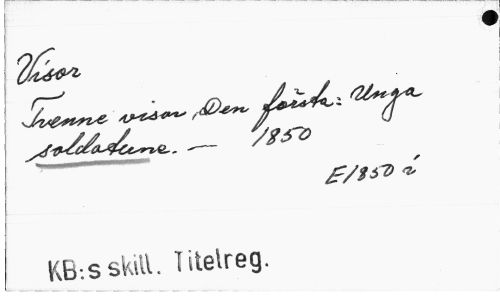 Visor
Tvenne visor, Den första: Unga
soldatune. — 1850
E1850 i
KB:s skill. Titelreg.